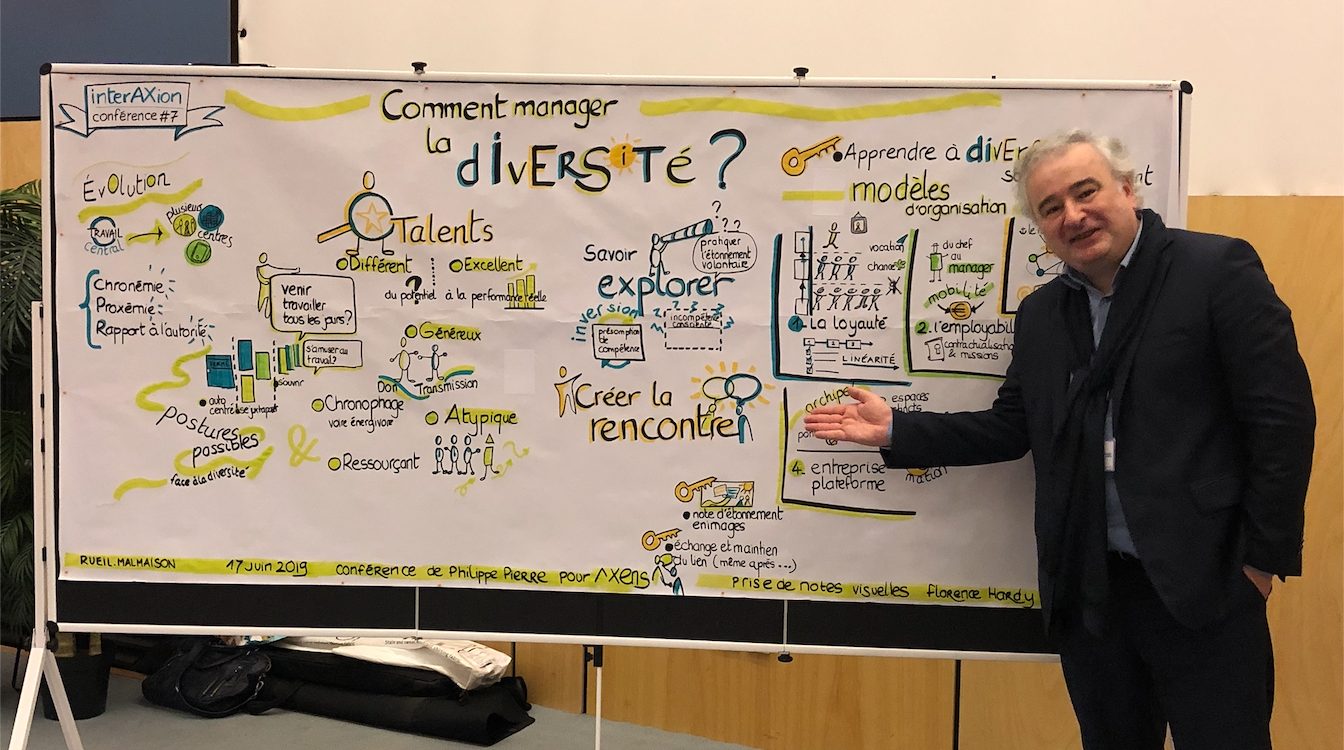 interAXion
conférence #7
Comment manager
la diVERSiTé ?
ÉvOlution
TRAVAIL
central
plusieurs
centres
Chronémie
Proxémie
Rapport à l'autorité
Talents
Différent
Excellent
du potentiel à la performance réelle
venir
travailler
tous les jours?
s'amuser au
travail?
Généreux
Don
Transmission
auto
centré
Chronophage
voire énergivore
Atypique
Ressourçant
postures
possibles
face à la diversité
&
Savoir
explorer
? ? ?
pratiquer
l'étonnement
volontaire
inversion
présomption
de
compétence
incompétence
consciente
Créer la
rencontre
note d'étonnement
en images
échange et maintien
du lien (même après...)
Apprendre à
modèles
d'organisation
vocation
chance
1. La loyauté
LINÉARITÉ
du chef
au
manager
mobilité
2. l'employabil
contractualisation
& missions
espaces
4. entreprise
plateforme
mation
RUEIL.MALMAISON
17 juin 2019
conférence de Philippe Pierre pour Axens
Prise de notes visuelles Florence Hardy